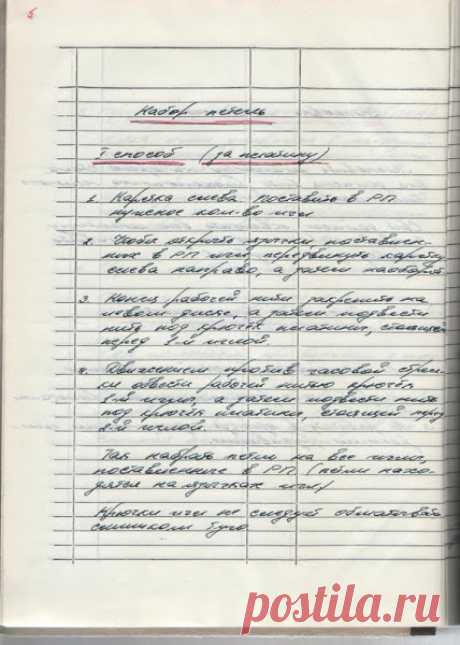 5
Набор петель
I способ (за платину)
1. Каретка слева. Поставить в РП
нужное кол-во игл
2. Чтобы открыть язычки, поставлен-
ных в РП игл, передвинуть каретку
слева направо, а затем наоборот.
3. Конец рабочей нити закрепить на
левом, а затем подвести
нить под крючок платины, стоящей
перед 1-й иглой.
4. Движением против часовой стрел-
ки обвести рабочей нитью крючок
1-й иглы, а затем подвести нить
под крючок платины, стоящей перед
2-й иглой.
Так набрать петли на все иглы,
поставленные в РП (петли нахо-
дятся на язычках игл)
Крючки игл не следует обматывать
слишком туго
postila.ru